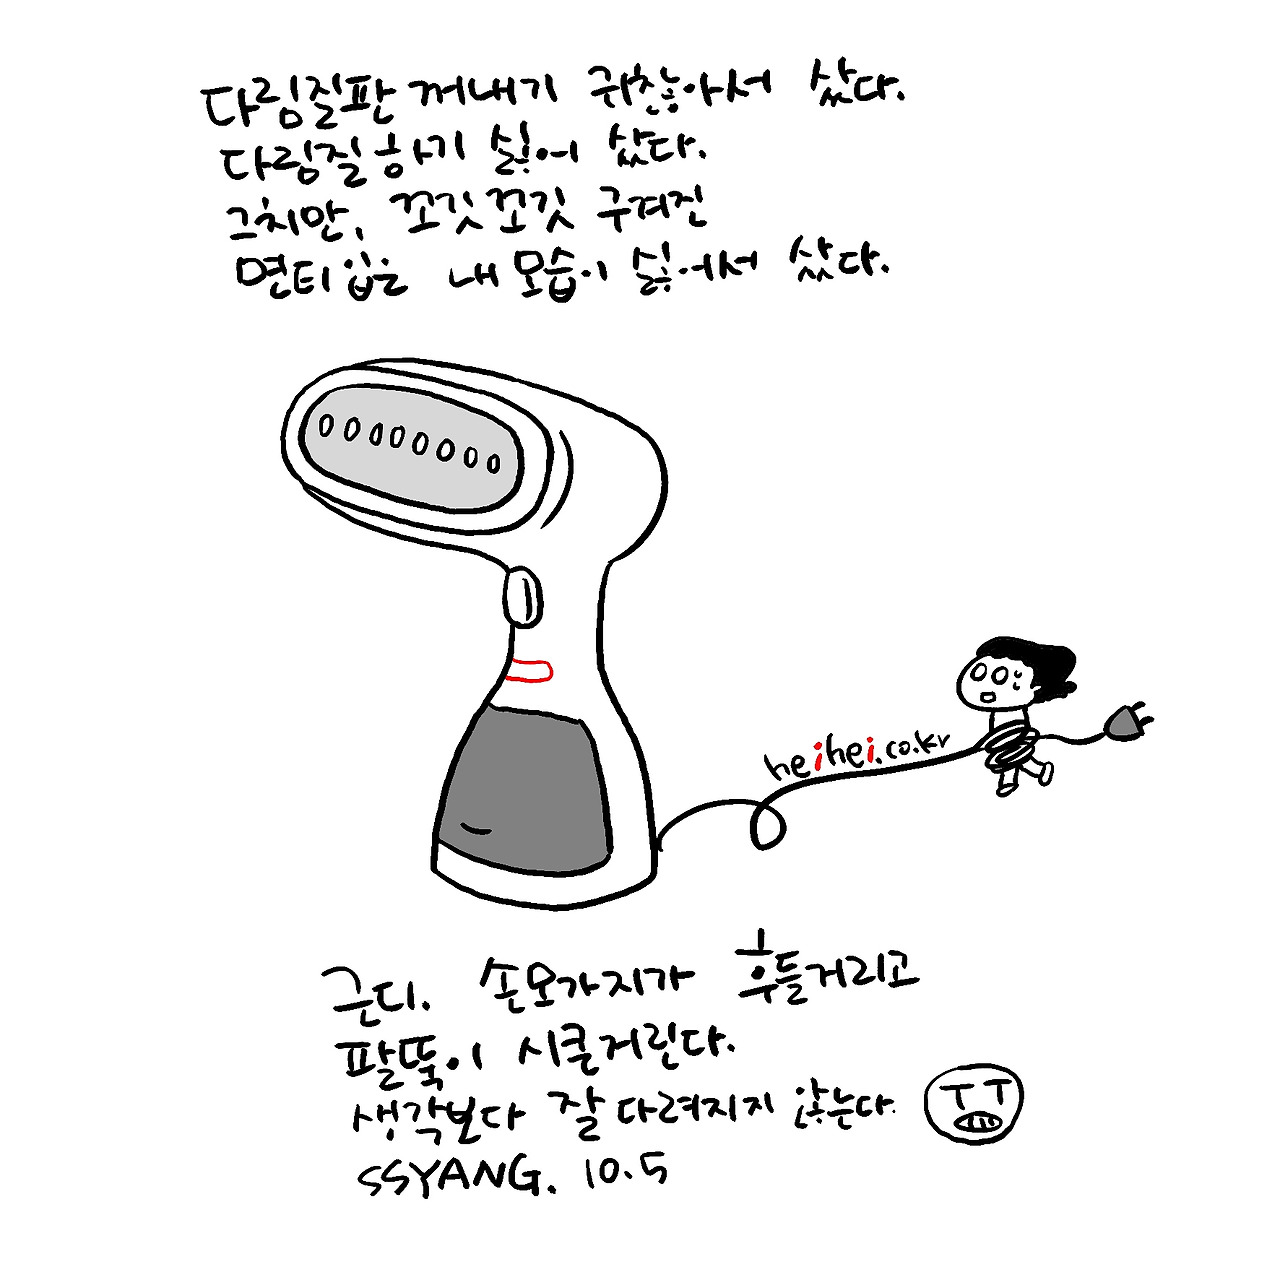 다림질판 꺼내기 귀찮아서 샀다.
다림질 하기 싫어 샀다.
그치만, 꼬깃꼬깃 구겨진
면티입는 내 모습이 싫어서 샀다.
heihei.co.kr
근디. 손모가지가 후들거리고
팔뚝이 시큰거린다.
생각보다 잘 다려지지 않는다.
SSYANG. 10.5